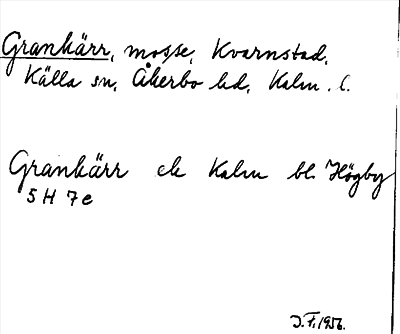 Grankärr, mosse, Kvarnstad,
Källa sn, Åkerbo hd, Kalm. l.
Grankärr ek Kalm bl. Högby
5 H 7 e
J. F. 1956.